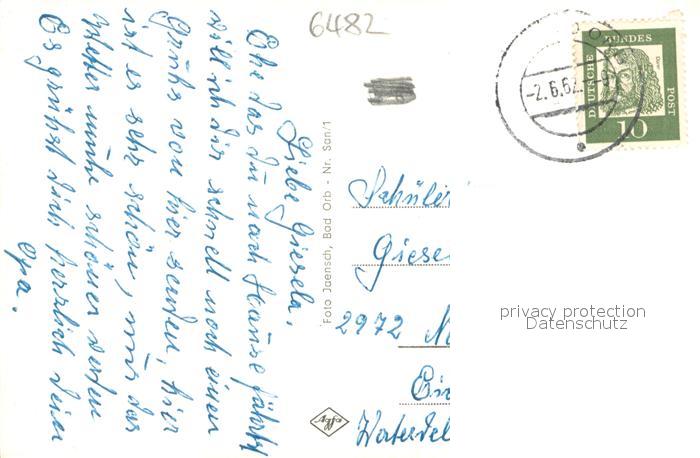 6482
Liebe Giesela,
Ehe das du nach Hause fährst
will ich dir schnell noch einen
Gruhs von hier senden, hier
ist es sehr schön, nur das
Wetter muhs schöner werden
Es grühst dich herzlich dein
Opa.
Foto Jaensch, Bad Orb - Nr. San/1
Agfa
Schüler
Giese
2972
Ein
Waterdel
-2.6.62
DEUTSCHE BUNDES POST
10
privacy protection
Datenschutz